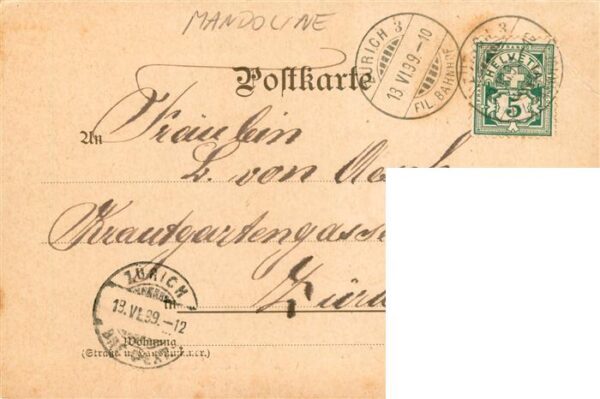 MANDOLINE
ZÜRICH 3
13 VI.99.-10
FIL. BAHNHOF
HELVETIA
5
Postkarte
An Fräulein
L. von
Krautgartengasse
ZÜRICH
13.VI.99.-12
in
Wohnung
(Straße u. Hausnummer.)